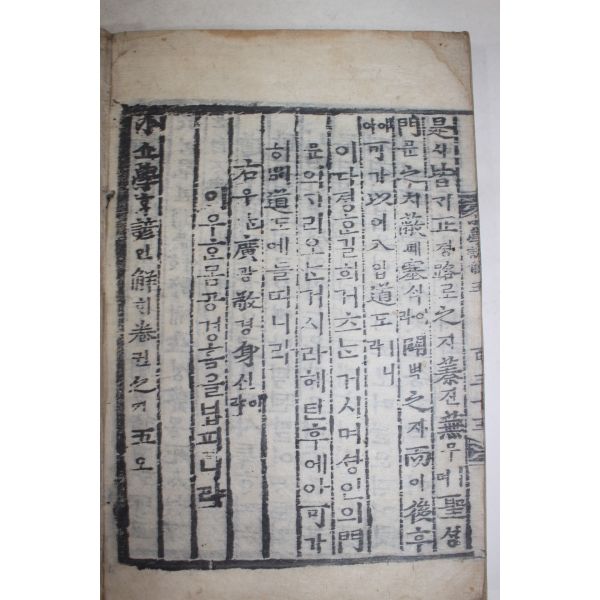 是시皆ᄀᆡ正졍路로之지蓁진蕪무ㅣ며聖셩
門문之지蔽폐塞ᄉᆡᆨ이라闢벽之지而이後후
에아可가以이入입道도ㅣ니라
이다졍ᄒᆞᆫ길희거츤거시며셩인의門
문의ᄀᆞ리오ᄂᆞᆫ거시라헤틴후에아可가
히道도에들띠니라
右우ᄂᆞᆫ廣광敬경身신이라
이우ᄒᆞᆫ몸공경홈을넙피니라
小쇼學ᄒᆞᆨ諺언解ᄒᆡ卷권之지五오